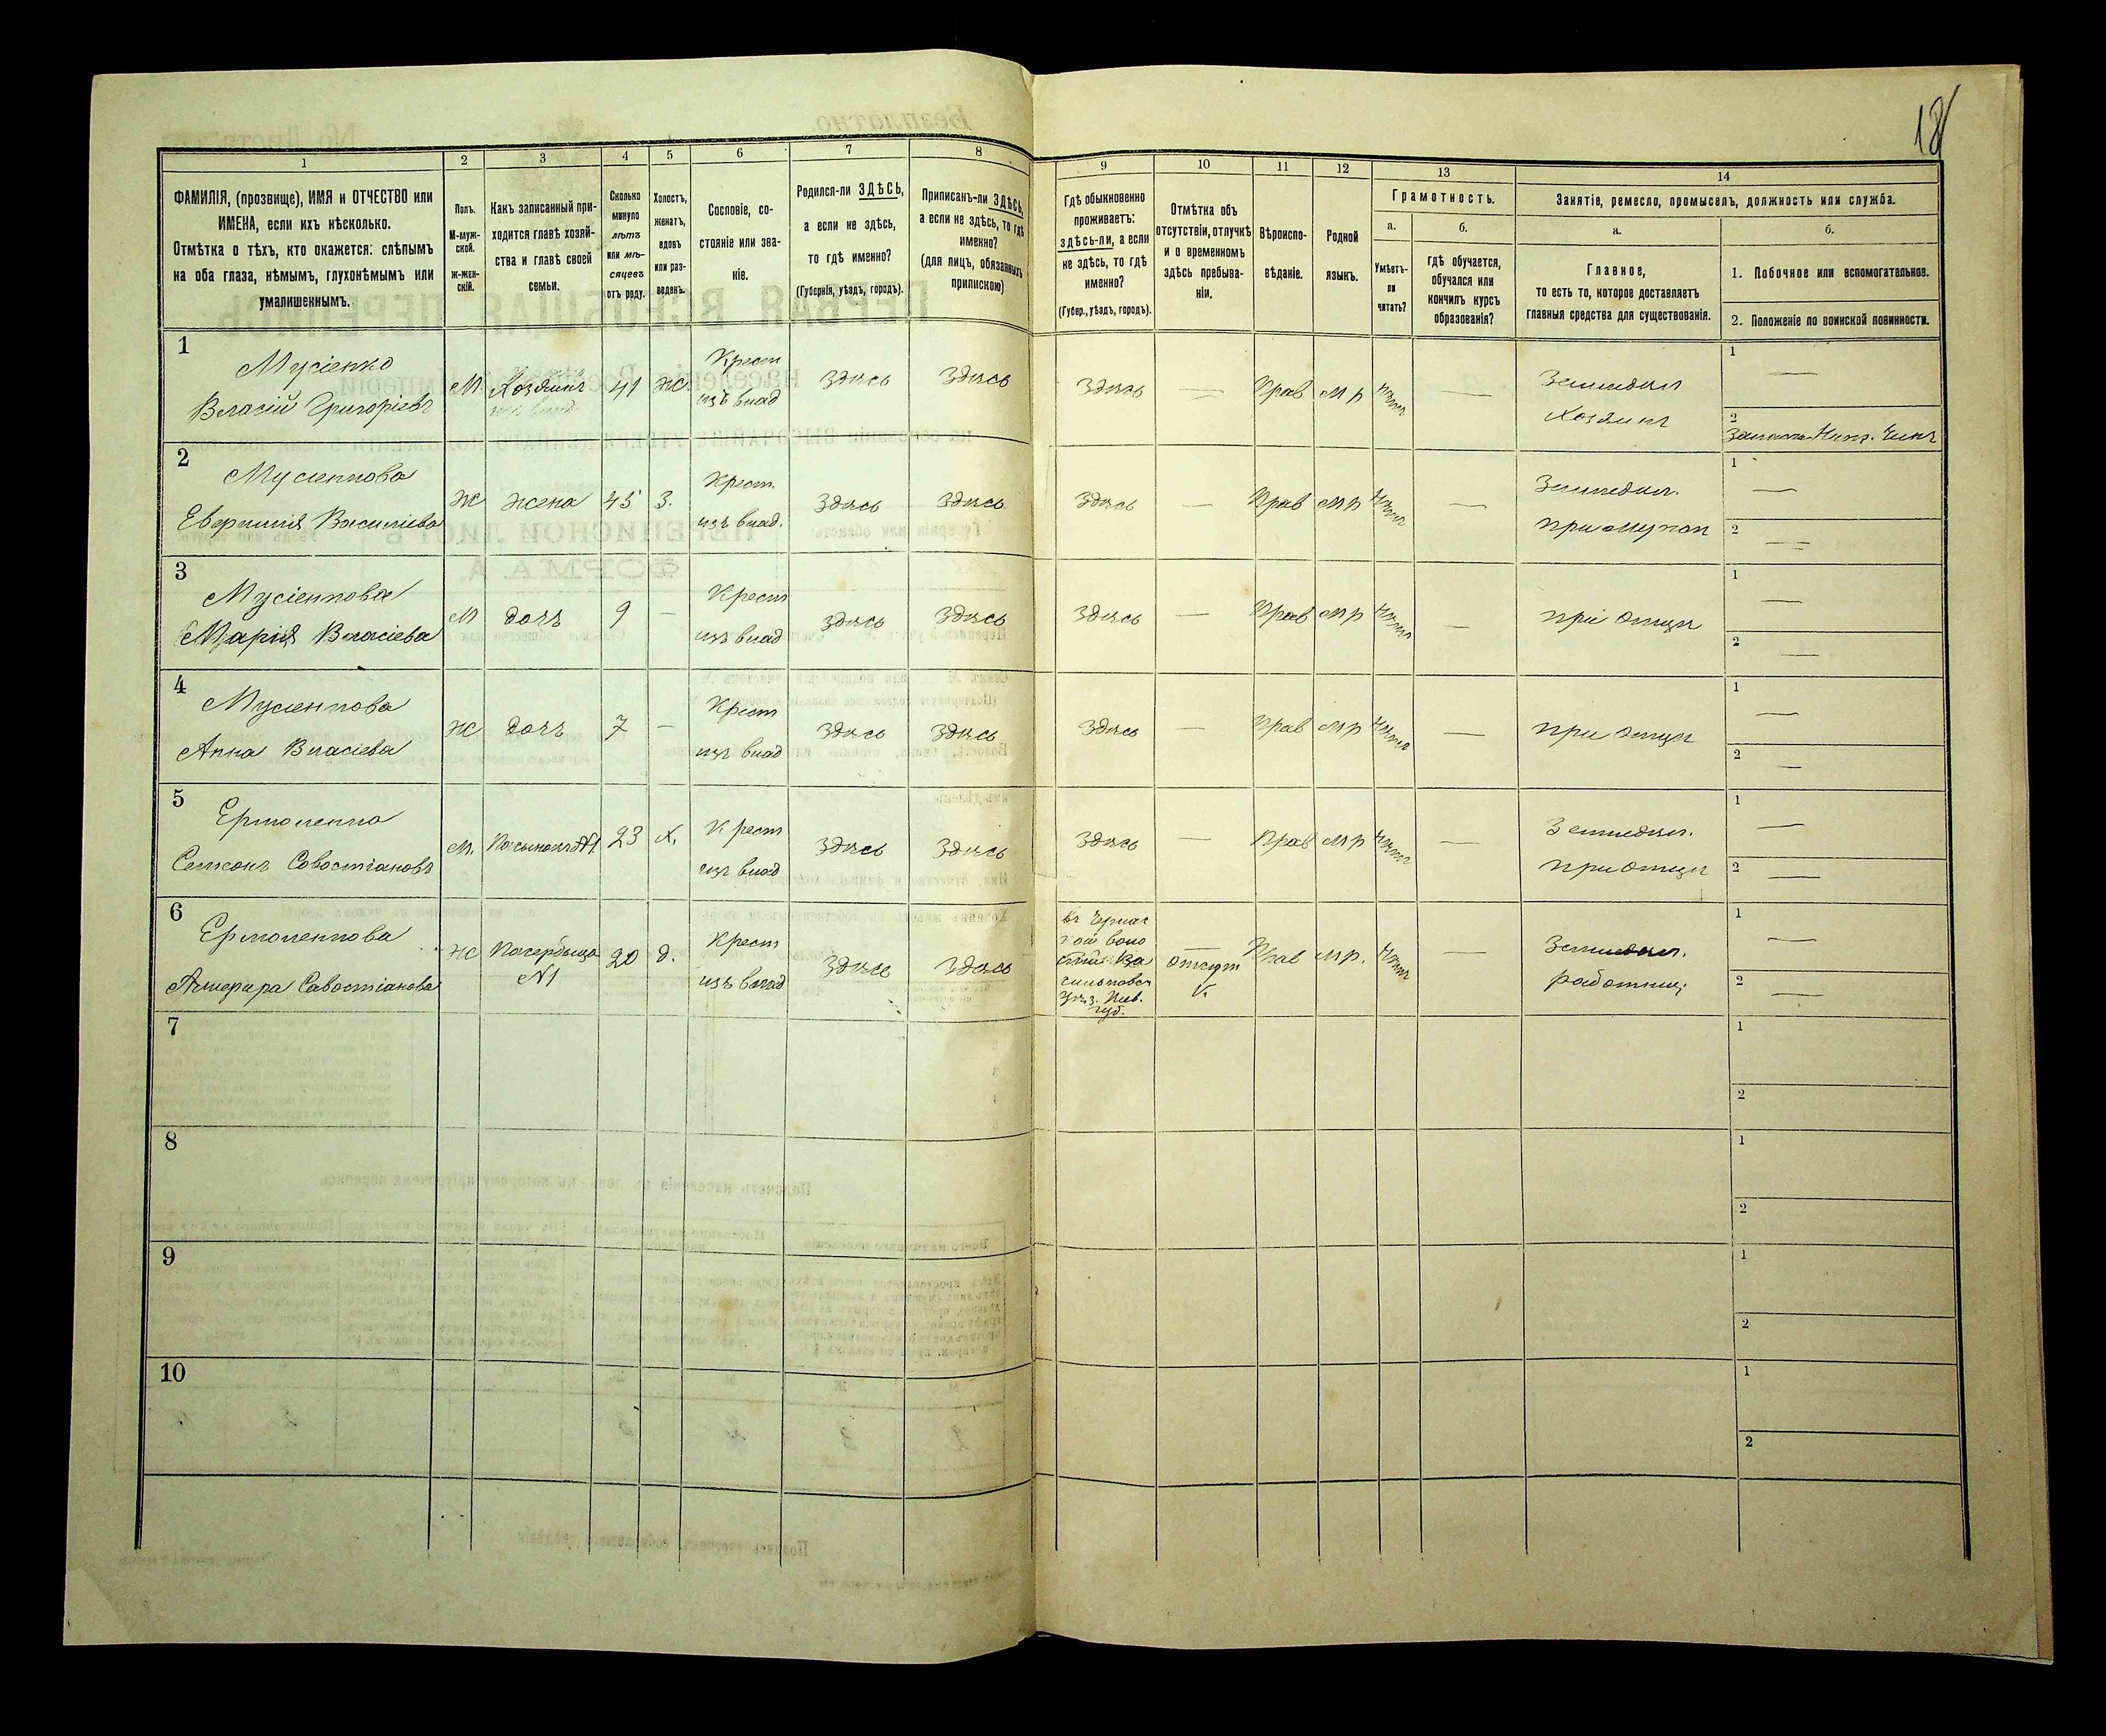 18
1
2
3
4
5
6
7
8
9
10
11
12
13
14
ФАМИЛІЯ, (прозвище), ИМЯ и ОТЧЕСТВО или
ИМЕНА, если ихъ нѣсколько.
Отмѣтка о тѣхъ, кто окажется: слѣпымъ
на оба глаза, нѣмымъ, глухонѣмымъ или
умалишеннымъ.
Полъ.
М-муж-
ской.
Ж-жен-
скій.
Какъ записанный при-
ходится главѣ хозяй-
ства и главѣ своей
семьи.
Сколько
минуло
лѣтъ
или мѣ-
сяцевъ
отъ роду.
Холостъ,
женатъ,
вдовъ
или раз-
веденъ.
Сословіе, со-
стояніе или зва-
ніе.
Родился-ли ЗДѢСЬ,
а если не здѣсь,
то гдѣ именно?
(Губернія, уѣздъ, городъ).
Приписанъ-ли ЗДѢСЬ,
а если не здѣсь, то гдѣ
именно?
(для лицъ, обязанныхъ
припискою)
Гдѣ обыкновенно
проживаетъ:
здѣсь-ли, а если
не здѣсь, то гдѣ
именно?
(Губер., уѣздъ, городъ).
Отмѣтка объ
отсутствіи, отлучкѣ
и о временномъ
здѣсь пребыва-
ніи.
Вѣроиспо-
вѣданіе.
Родной
языкъ.
Грамотность.
а.
б.
Умѣетъ-
ли
читать?
гдѣ обучается,
обучался или
кончилъ курсъ
образованія?
Занятіе, ремесло, промыселъ, должность или служба.
а.
б.
Главное,
то есть то, которое доставляетъ
главныя средства для существованія.
1. Побочное или вспомогательное.
2. Положеніе по воинской повинности.
1
Мусіенко
Власій Григоріевъ
М
Хозяинъ
41
Ж
Крест
изъ влад
Здѣсь
Здѣсь
Здѣсь
—
Прав
М р
—
Земледѣл
Хозяинъ
1 —
2
Чинъ
2
Мусіенкова
Василіева
Ж
жена
45
З.
Крест.
изъ влад.
Здѣсь
Здѣсь
Здѣсь
—
Прав
М р
—
Земледѣл.
при мужѣ
1 —
2 —
3
Мусіенкова
Марія Власіева
М
дочь
9
—
Крест
изъ влад
Здѣсь
Здѣсь
Здѣсь
—
Прав
М р
—
при отцѣ
1 —
2 —
4
Мусіенкова
Анна Власіева
Ж
дочь
7
—
Крест
изъ влад
Здѣсь
Здѣсь
Здѣсь
—
Прав
М р
—
при отцѣ
1 —
2 —
5
Ермоленко
Самсонъ Совостіановъ
М.
Пасынокъ №1
23
Х.
Крест
изъ влад
Здѣсь
Здѣсь
Здѣсь
—
Прав
М р
—
Земледѣл.
при отцѣ
1 —
2 —
6
Ермоленкова
Савостіанова
Ж
№1
20
д.
Крест
изъ влад
Здѣсь
Здѣсь
въ Черкас
Ва
сильковск
Уѣз. Кіев.
Губ.
—
отсут
Прав
М р.
—
Земледѣл.
работниц.
1 —
2 —
7
1
2
8
1
2
9
1
2
10
1
2